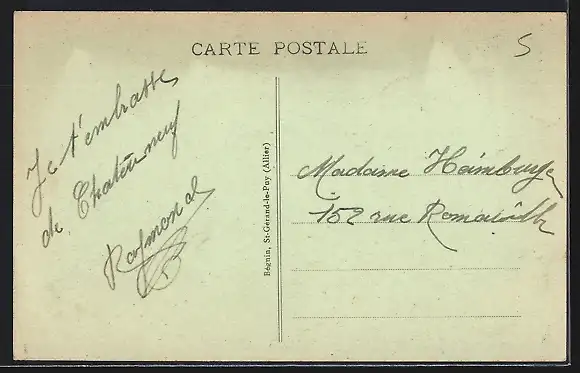 CARTE POSTALE
5
Je t'embrasse
de Chateauneuf
Raymond
Bégnin, St-Gérand-le-Puy (Allier)
Madame
152 rue Romainville